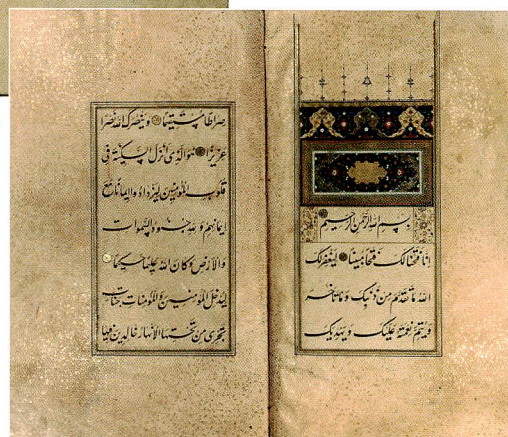 بسم الله الرحمن الرحیم
انا فتحنا لک فتحا مبینا لیغفر لک
الله ما تقدم من ذنبک و ما تاخر
و یتم نعمته علیک و یهدیک
صراطا مستقیما و ینصرک الله نصرا
عزیزا هو الذی انزل السکینة فی
قلوب المؤمنین لیزدادوا ایمانا مع
ایمانهم و لله جنود السموات
والارض و کان الله علیما حکیما
لیدخل المؤمنین و المؤمنات جنات
تجری من تحتها الانهار خالدین فیها